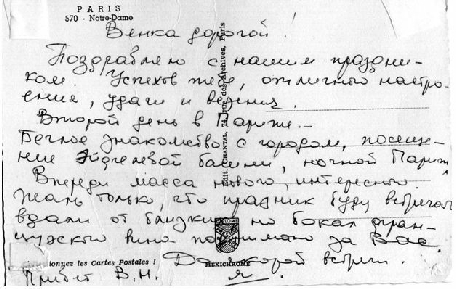 PARIS
670 - Notre-Dame
Венка дорогой!
Поздравляю с нашим праздни-
ком Успехов тебе, отличного настро-
ения, удачи и везения.
Второй день в Париже.
Беглое знакомство с городом, посеще-
ние Эйфелевой башни, ночной Париж
Впереди масса нового, интересного
Жаль только, что праздник буду встречать
вдали от близких но бокал фран-
цузского вина поднимаю за Вас.
До скорой встречи.
Привет В.Н. Я.
les Cartes Postales
MEXICHROME